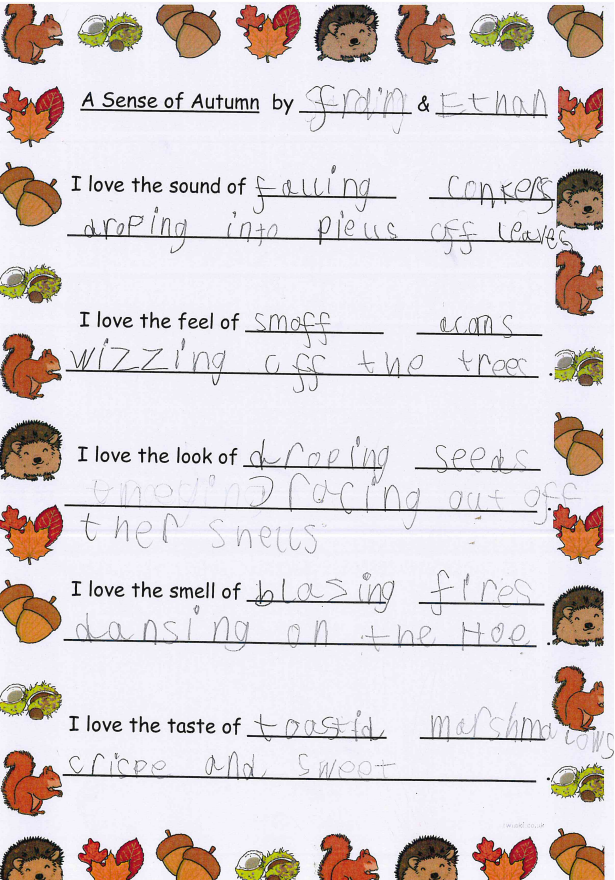 A Sense of Autumn by & Ethan
I love the sound of falling conkers
droping into pieus off leaves
I love the feel of smoff acorns
wizzing off the trees
I love the look of droping seeds
racing out off
ther shells
I love the smell of blasing fires
dansing on the Hoe
I love the taste of toastid marshmalows
crispe and sweet